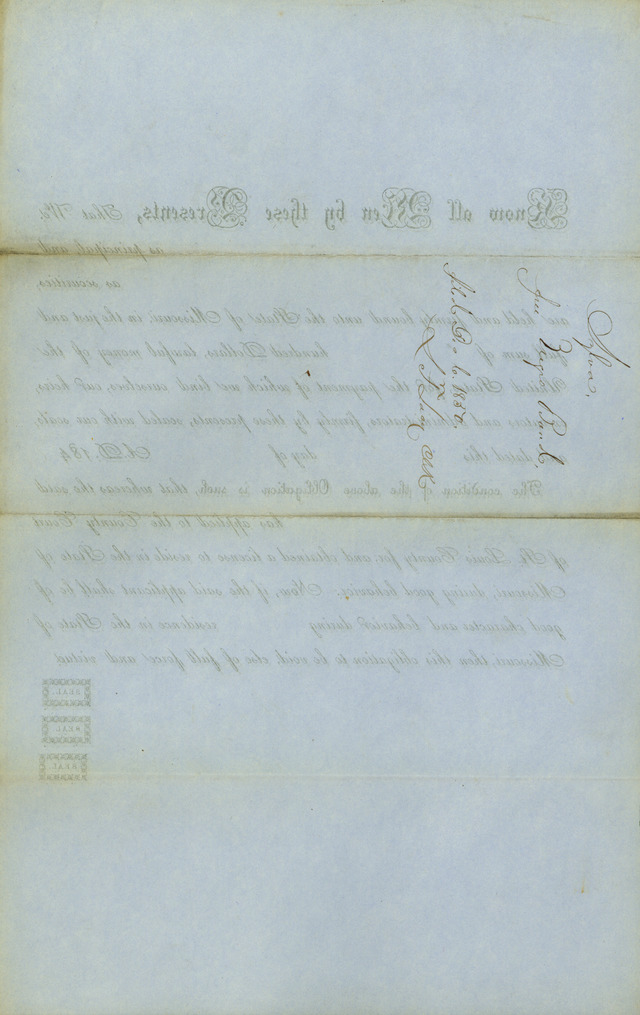 Free Negro Bond.
Filed Dec. 6. 1850.
Clk
Know all Men by these Presents, That We,
as principal and
as securities,
are held and firmly bound unto the State of Missouri, in the just and
sum of hundred Dollars, lawful money of the
United States, the payment of which we bind ourselves, our heirs,
executors and administrators, firmly by these presents, sealed with our seals
dated this day of A.D. 184
The condition of the above Obligation is such, that whereas the said
has applied to the County Court
of St. Louis County for, and obtained a license to reside in the State of
Missouri, during good behavior. Now, if the said applicant shall be of
good character and behavior during residence in the State of
Missouri, then this obligation to be void, else of full force and virtue
SEAL
SEAL
SEAL